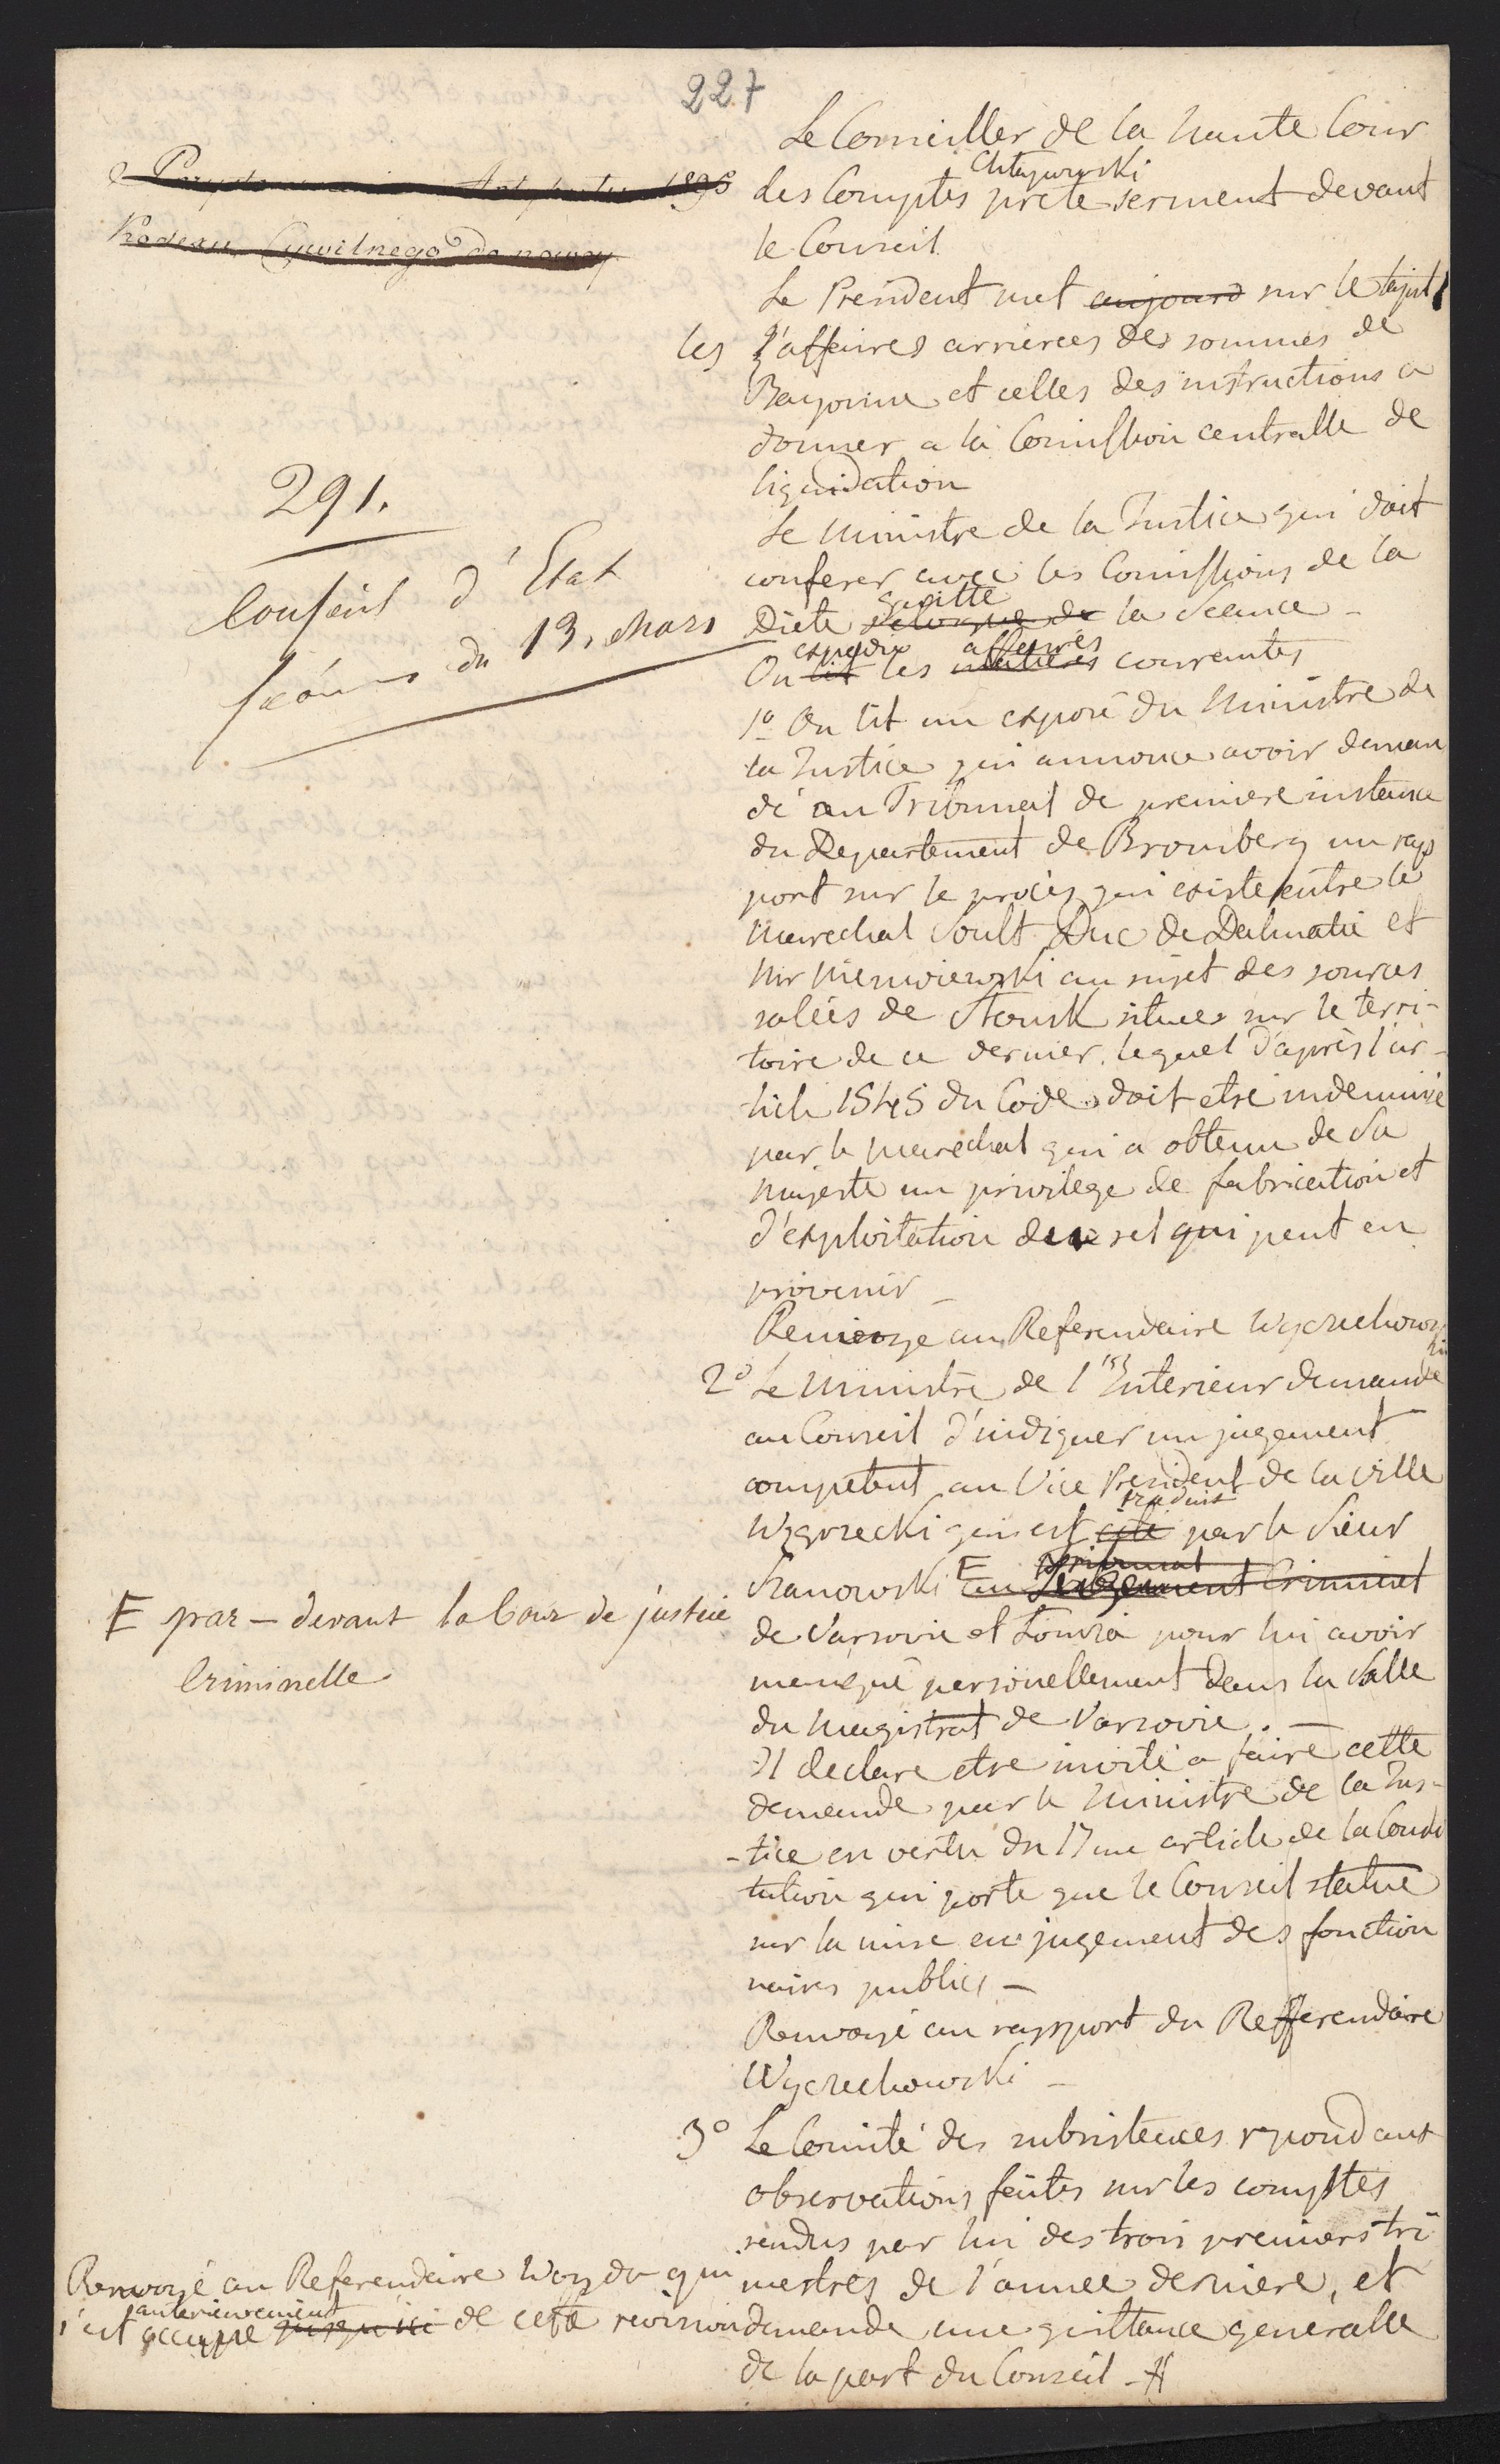 227
Le Conseiller de la haute Cour
Chtapowski
des Comptes prete serment devant
le Conseil.
Le President met aujourd sur le tapit
les l'affaires arrierées des sommes de
Bayonne et celles des instructions a
donner a la Comission centralle de
liquidation
291.
Conseil d'Etat
séance du 13. Mars
Le Ministre de la Justice qui doit
conferer avec les Comissions de la
quitte
Diete la Seance –
expedie affaires
On lit les matieres courantes
1º On lit un exposé du Ministre de
la Justice qui annonce avoir deman
dé au Tribunal de premiere instance
du Departement de Bromberg un rap
port sur le procès qui existe entre le
Marechal Soult Duc de Dalmatie et
Mr Niemoiewski au sujet des sources
salées de Slonsk situees sur le terri-
toire de ce dernier, lequel d'après l'ar-
ticle 1545 du Code doit etre indemnisé
par le marechal qui a obtenu de Sa
Majesté un privilege de fabrication et
d'exploitation du sel qui peut en
provenir –
Renvoye au Referendaire Wyczechows
ki
2º Le Ministre de l'Interieur demande
au Conseil d'indiquer un jugement
competent au Vice President de la ville
traduit
Wegrzecki qui est cité par le Sieur
Tribunal
Szanowski E au Jugement Criminel
E par-devant la Cour de justice
Criminelle
de Varsovie et Lomza pour lui avoir
manqué personellement dans la Salle
du Magistrat de Varsovie. –
Il declare etre invité a faire cette
demande par le Ministre de la Jus-
-tice en vertu du 17me article de la Consti
tution qui porte que le Conseil statue
sur la mise en jugement des fonction
naires publics –
Renvoyé au rapport du Refferendaire
Wyczechowski –
3º Le Comité des subsistences repond aux
observations faites sur les comptes
rendus par lui des trois premiers tri
mestres de l'année derniere, et
demande une quittance generalle
de la part du Conseil - #
Renvoyé au Referendaire Woyda qui
anterieurement
s'est occuppé jusqu'ici de cette revision